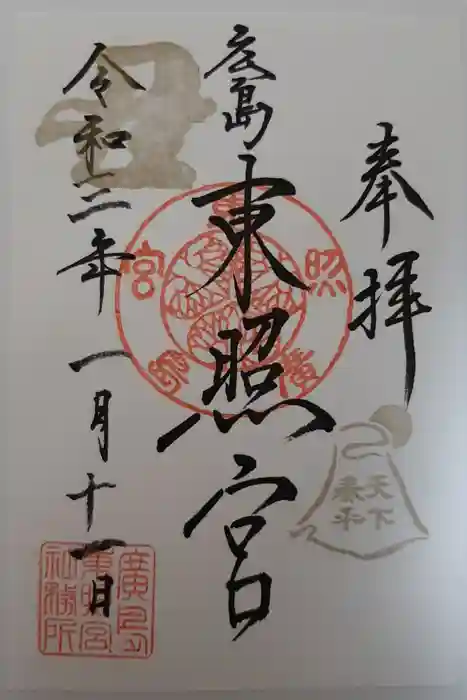 奉拝
天下
泰平
広島
東照宮
東照宮廣島
丑
令和三年一月十一日
廣島
東照宮
社務所